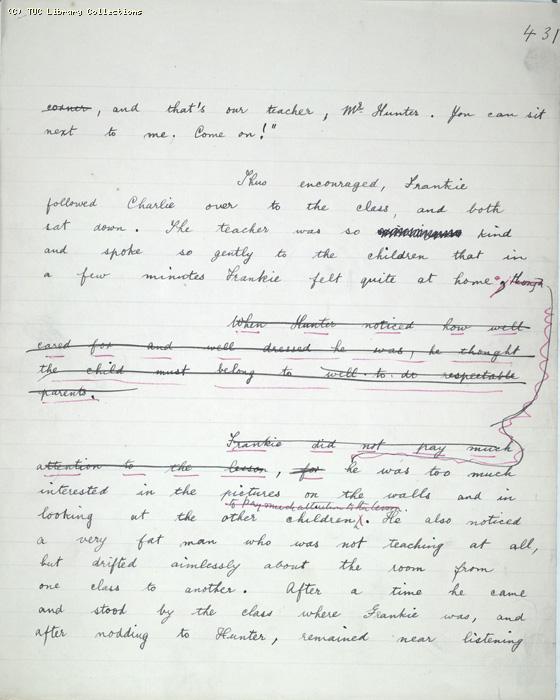 (C) TUC Library Collections
431
corner, and that's our teacher, Mr Hunter. You can sit
next to me. Come on!"
Thus encouraged, Frankie
followed Charlie over to the class, and both
sat down. The teacher was so kind
and spoke so gently to the children that in
a few minutes Frankie felt quite at home. though
When Hunter noticed how well
cared for and well dressed he was, he thought
the child must belong to well-to-do respectable
parents.
Frankie did not pay much
attention to the lesson, for he was too much
interested in the pictures on the walls and in
to pay much attention to the lesson
looking at the other children. He also noticed
a very fat man who was not teaching at all,
but drifted aimlessly about the room from
one class to another. After a time he came
and stood by the class where Frankie was, and
after nodding to Hunter, remained near listening